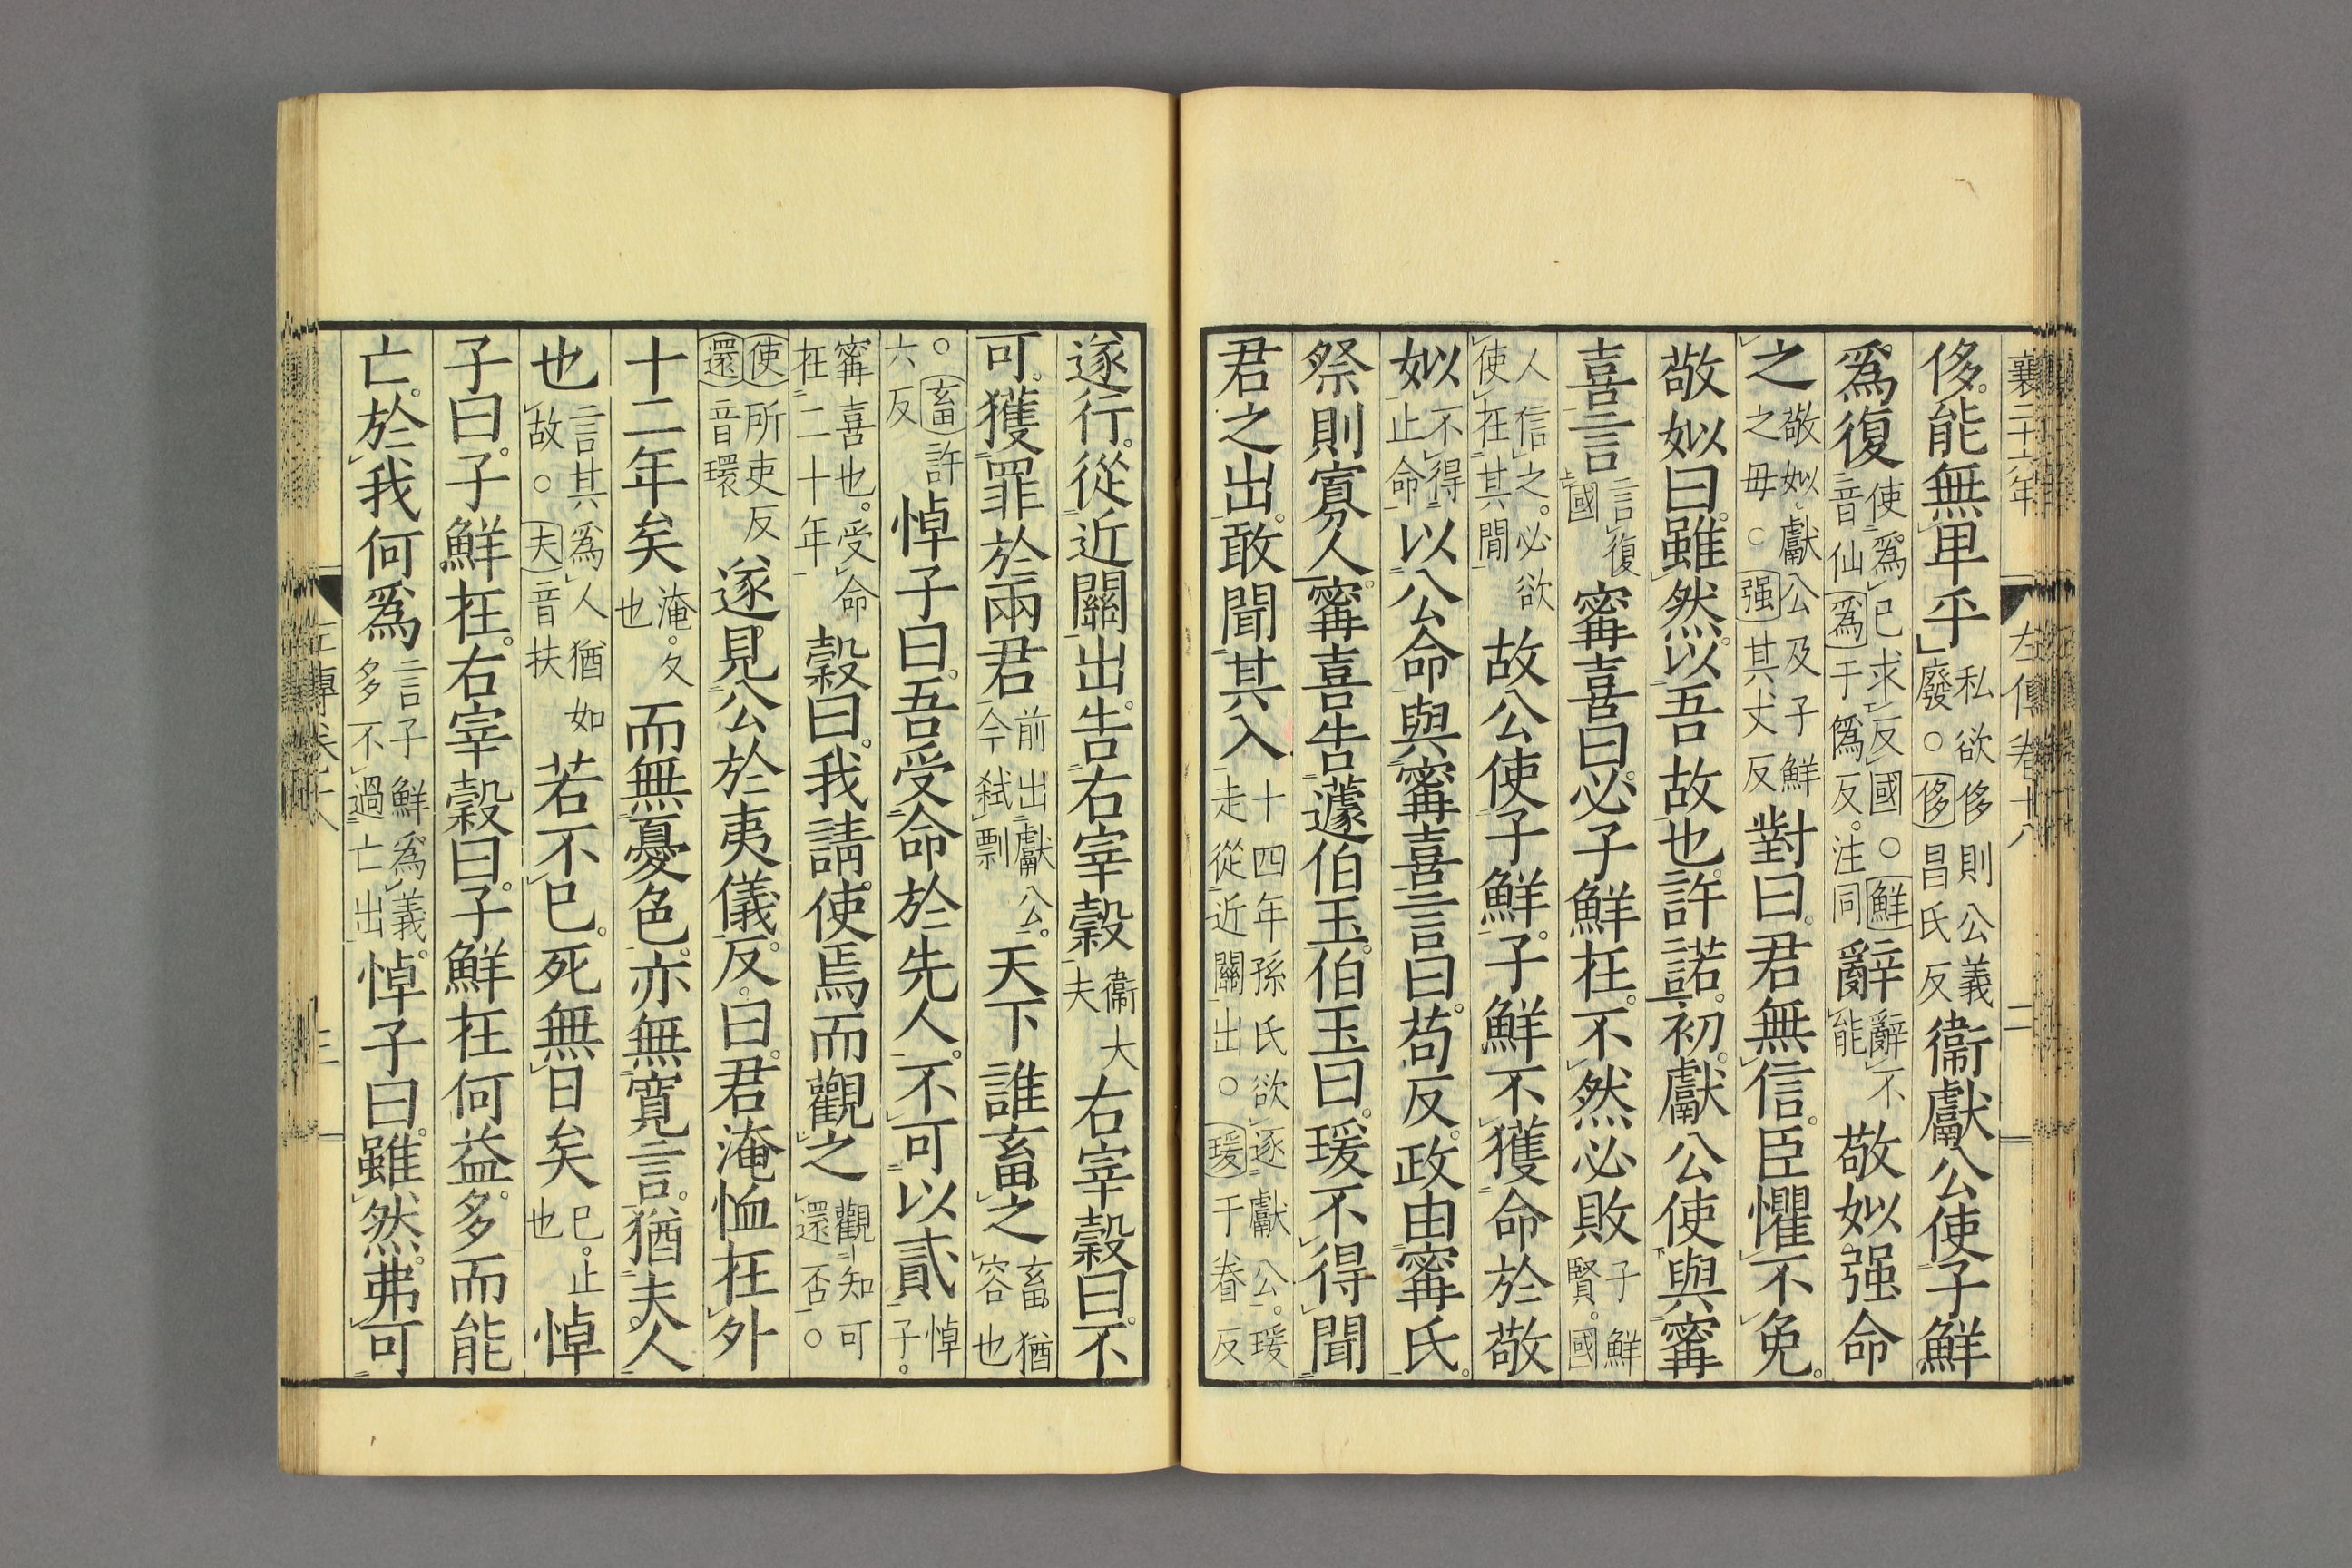 襄二十六年 左傳卷十八 二
侈。能無卑乎 私欲侈則公義廢。○侈昌氏反 衞獻公使子鮮
爲復 使爲己求反國。○鮮音仙爲于僞反。注同 辭 辭不能 敬姒強命
之 敬姒獻公及子鮮之母。○强其丈反 對曰。君無信。臣懼不免。
敬姒曰。雖然。以吾故也。許諾。初。獻公使與甯
喜言 言復國 甯喜曰。必子鮮在。不然必敗 子鮮賢。國
人信之。必欲使在其間 故公使子鮮。子鮮不獲命於敬
姒 不得止命 以公命與甯喜言曰。苟反。政由甯氏。
祭則寡人。甯喜告蘧伯玉。伯玉曰。瑗不得聞
君之出。敢聞其入 十四年孫氏欲逐獻公。瑗走從近關出。○瑗于眷反
遂行。從近關出。告右宰穀 衞大夫 右宰穀曰。不
可。獲罪於兩君 前出獻公。今弑剽 天下誰畜之 畜猶容也
○畜許六反 悼子曰。吾受命於先人。不可以貳 悼子。
甯喜也。受命在二十年 穀曰。我請使焉而觀之 觀知可還否。○
使所吏反還音環 遂見公於夷儀。反。曰。君淹恤在外
十二年矣 淹。久也 而無憂色。亦無寬言。猶夫人
也 言其爲人猶如故。○夫音扶 若不已。死無日矣 已。止也 悼
子曰。子鮮在。右宰穀曰。子鮮在何益。多而能
亡。於我何爲 言子鮮爲義。多不過亡出 悼子曰。雖然。弗可